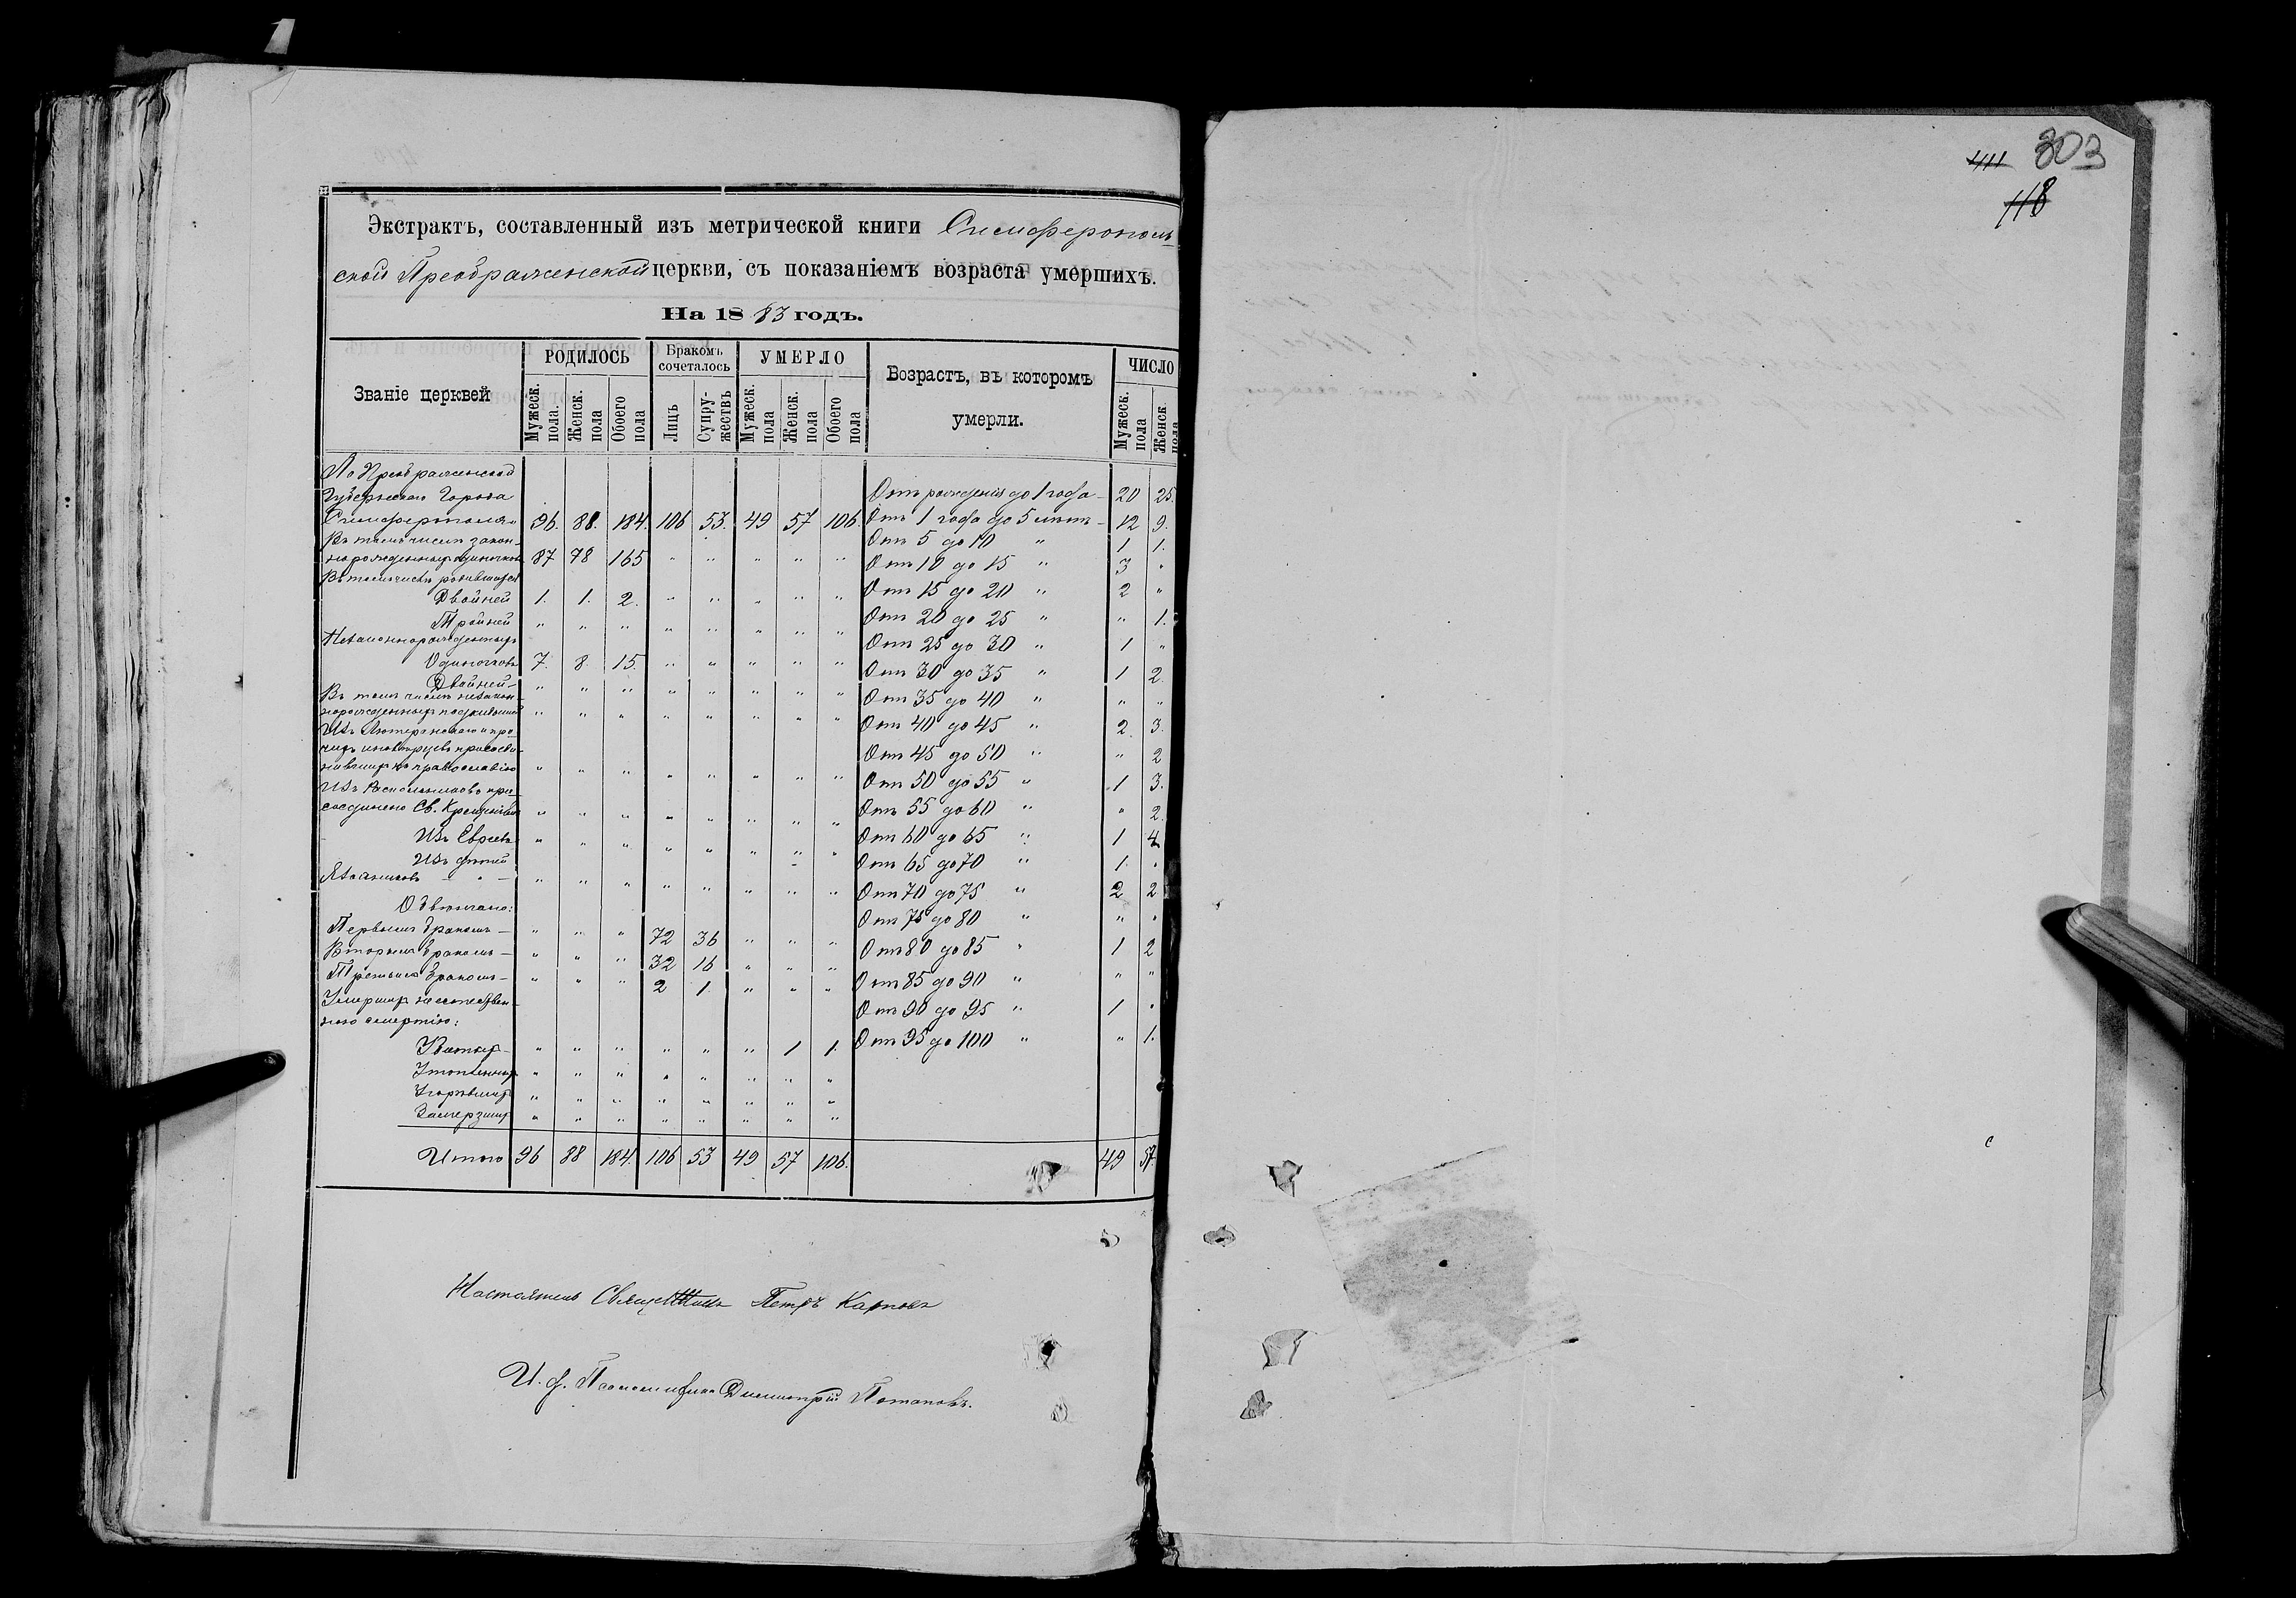 Экстрактъ, составленный изъ метрической книги Симферополь-
ской Преображенской церкви, съ показаніемъ возраста умершихъ.
На 1883 годъ.
Званіе церквей
РОДИЛОСЬ
Бракомъ сочеталось
УМЕРЛО
Возрастъ, въ которомъ умерли.
ЧИСЛО
Мужеск. пола. Женск. пола Обоего пола Лицъ Супружествъ Мужеск. пола Женск. пола Обоего пола Мужеск. пола Женск. пола
По Преображенской
Губернскаго Города
Симферополя 96. 88. 184. 106 53. 49 57 106.
Въ томъ числѣ закон-
норожденныхъ одиночковъ 87 78 165 " " " " "
Въ томъ числѣ родившихся
Двойней 1. 1. 2. " " " " "
Тройней " " " " " " " "
Незаконнорожденныхъ
Одиночковъ 7. 8. 15. " " " " "
Двойней - " " " " " " " "
Въ томъ числѣ незакон-
норожденныхъ подкидышей " " " " " " " "
Изъ Лютеранскаго и про-
чихъ иновѣрцевъ присоеди-
нившихъ къ православію " " " " " " " "
Изъ Раскольниковъ при-
соединено Св. Крещеніемъ " " " " " " " "
Изъ Евреевъ " " " " " " " "
Изъ дѣтей
Язычниковъ - " - " " " " " " " "
Обвѣнчано:
Первымъ бракомъ - " " " 72 36 " " "
Вторымъ бракомъ - " " " 32 16 " " "
Третьимъ бракомъ - " " " 2 1. " " "
Умершихъ неестествен-
ною смертію:
Убитыхъ - " " " " " " 1 1.
Утопленныхъ " " " " " " " "
Угорѣвшихъ " " " " " " " "
Замерзшихъ " " " " " " " "
Отъ рожденія до 1 года - 20 25.
Отъ 1 года до 5 лѣтъ - 12 9.
Отъ 5 до 10 " 1 1.
Отъ 10 до 15 " 3 "
Отъ 15 до 20 " 2 "
Отъ 20 до 25 " " 1.
Отъ 25 до 30 " 1 "
Отъ 30 до 35 " 1 2.
Отъ 35 до 40 " " "
Отъ 40 до 45 " 2. 3.
Отъ 45 до 50 " " 2
Отъ 50 до 55 " 1 3.
Отъ 55 до 60 " " 2.
Отъ 60 до 65 " 1 4
Отъ 65 до 70 " 1. "
Отъ 70 до 75 " 2 2
Отъ 75 до 80 " " "
Отъ 80 до 85 " 1 2
Отъ 85 до 90 " " "
Отъ 90 до 95 " 1 "
Отъ 95 до 100 " " 1.
Итого 96 88 184. 106 53 49 57 106. 49 57.
Настоятель Священникъ Петръ Карповъ
И. д. Псаломщика Димитрій Потаповъ.
411 303
118